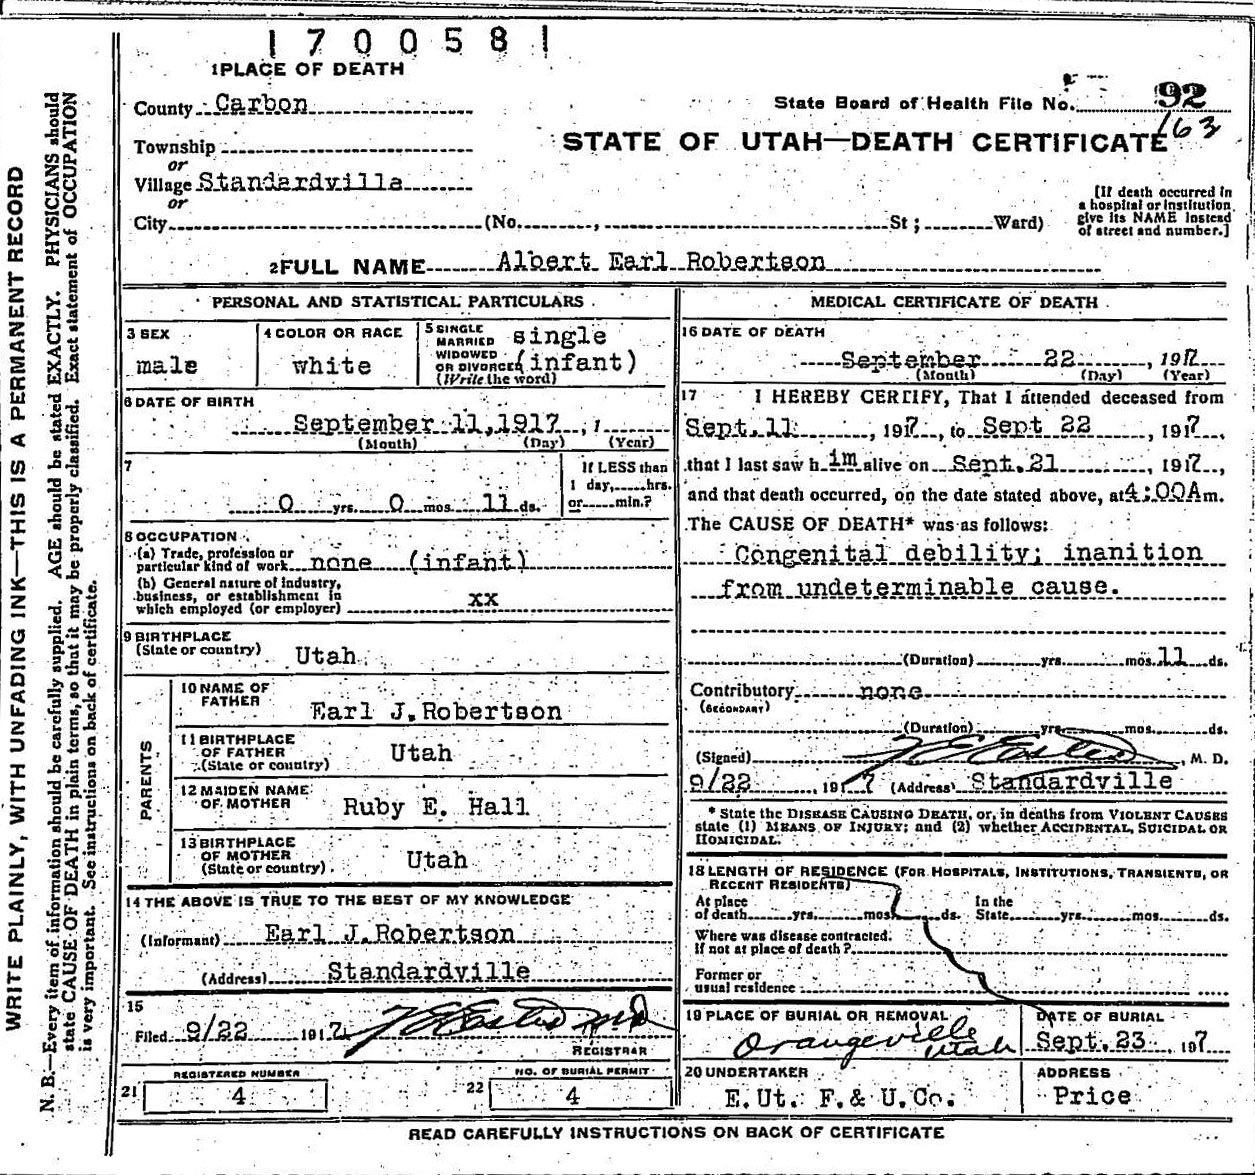 1700581
1 PLACE OF DEATH
County Carbon
State Board of Health File No. 92
163
Township
or
Village Standardville
or
City (No. , St ; Ward)
STATE OF UTAH—DEATH CERTIFICATE
[If death occurred in
a hospital or institution
give its NAME instead
of street and number.]
2 FULL NAME Albert Earl Robertson
PERSONAL AND STATISTICAL PARTICULARS
3 SEX
male
4 COLOR OR RACE
white
5 SINGLE
MARRIED
WIDOWED
OR DIVORCED
(Write the word)
single
(infant)
6 DATE OF BIRTH
September 11, 1917 , 1
(Month) (Day) (Year)
7
0 yrs. 0 mos. 11 ds.
If LESS than
1 day, hrs.
or min.?
8 OCCUPATION
(a) Trade, profession or
particular kind of work none (infant)
(b) General nature of industry,
business, or establishment in
which employed (or employer) xx
9 BIRTHPLACE
(State or country) Utah
PARENTS
10 NAME OF
FATHER
Earl J. Robertson
11 BIRTHPLACE
OF FATHER
(State or country)
Utah
12 MAIDEN NAME
OF MOTHER
Ruby E. Hall
13 BIRTHPLACE
OF MOTHER
(State or country)
Utah
14 THE ABOVE IS TRUE TO THE BEST OF MY KNOWLEDGE
(Informant) Earl J. Robertson
(Address) Standardville
15
Filed 9/22 1917
REGISTRAR
REGISTERED NUMBER
21 4
NO. OF BURIAL PERMIT
22 4
MEDICAL CERTIFICATE OF DEATH
16 DATE OF DEATH
September 22 , 1917
(Month) (Day) (Year)
17 I HEREBY CERTIFY, That I attended deceased from
Sept. 11 , 1917 , to Sept 22 , 1917,
that I last saw h im alive on Sept. 21 , 1917,
and that death occurred, on the date stated above, at 4:00A m.
The CAUSE OF DEATH* was as follows:
Congenital debility; inanition
from undeterminable cause.
(Duration) yrs. mos. 11 ds.
Contributory none
(SECONDARY)
(Duration) yrs. mos. ds.
(Signed) , M. D.
9/22 , 1917 (Address) Standardville
* State the DISEASE CAUSING DEATH, or, in deaths from VIOLENT CAUSES
state (1) MEANS OF INJURY; and (2) whether ACCIDENTAL, SUICIDAL OR
HOMICIDAL.
18 LENGTH OF RESIDENCE (FOR HOSPITALS, INSTITUTIONS, TRANSIENTS, OR
RECENT RESIDENTS)
At place
of death yrs. mos. ds.
In the
State yrs. mos. ds.
Where was disease contracted.
If not at place of death?
Former or
usual residence
19 PLACE OF BURIAL OR REMOVAL
Orangeville
Utah
DATE OF BURIAL
Sept. 23 197
20 UNDERTAKER
E. Ut. F. & U. Co.
ADDRESS
Price
READ CAREFULLY INSTRUCTIONS ON BACK OF CERTIFICATE
WRITE PLAINLY, WITH UNFADING INK—THIS IS A PERMANENT RECORD
N. B.—Every item of information should be carefully supplied. AGE should be stated EXACTLY. PHYSICIANS should
state CAUSE OF DEATH in plain terms, so that it may be properly classified. Exact statement of OCCUPATION
is very important. See instructions on back of certificate.